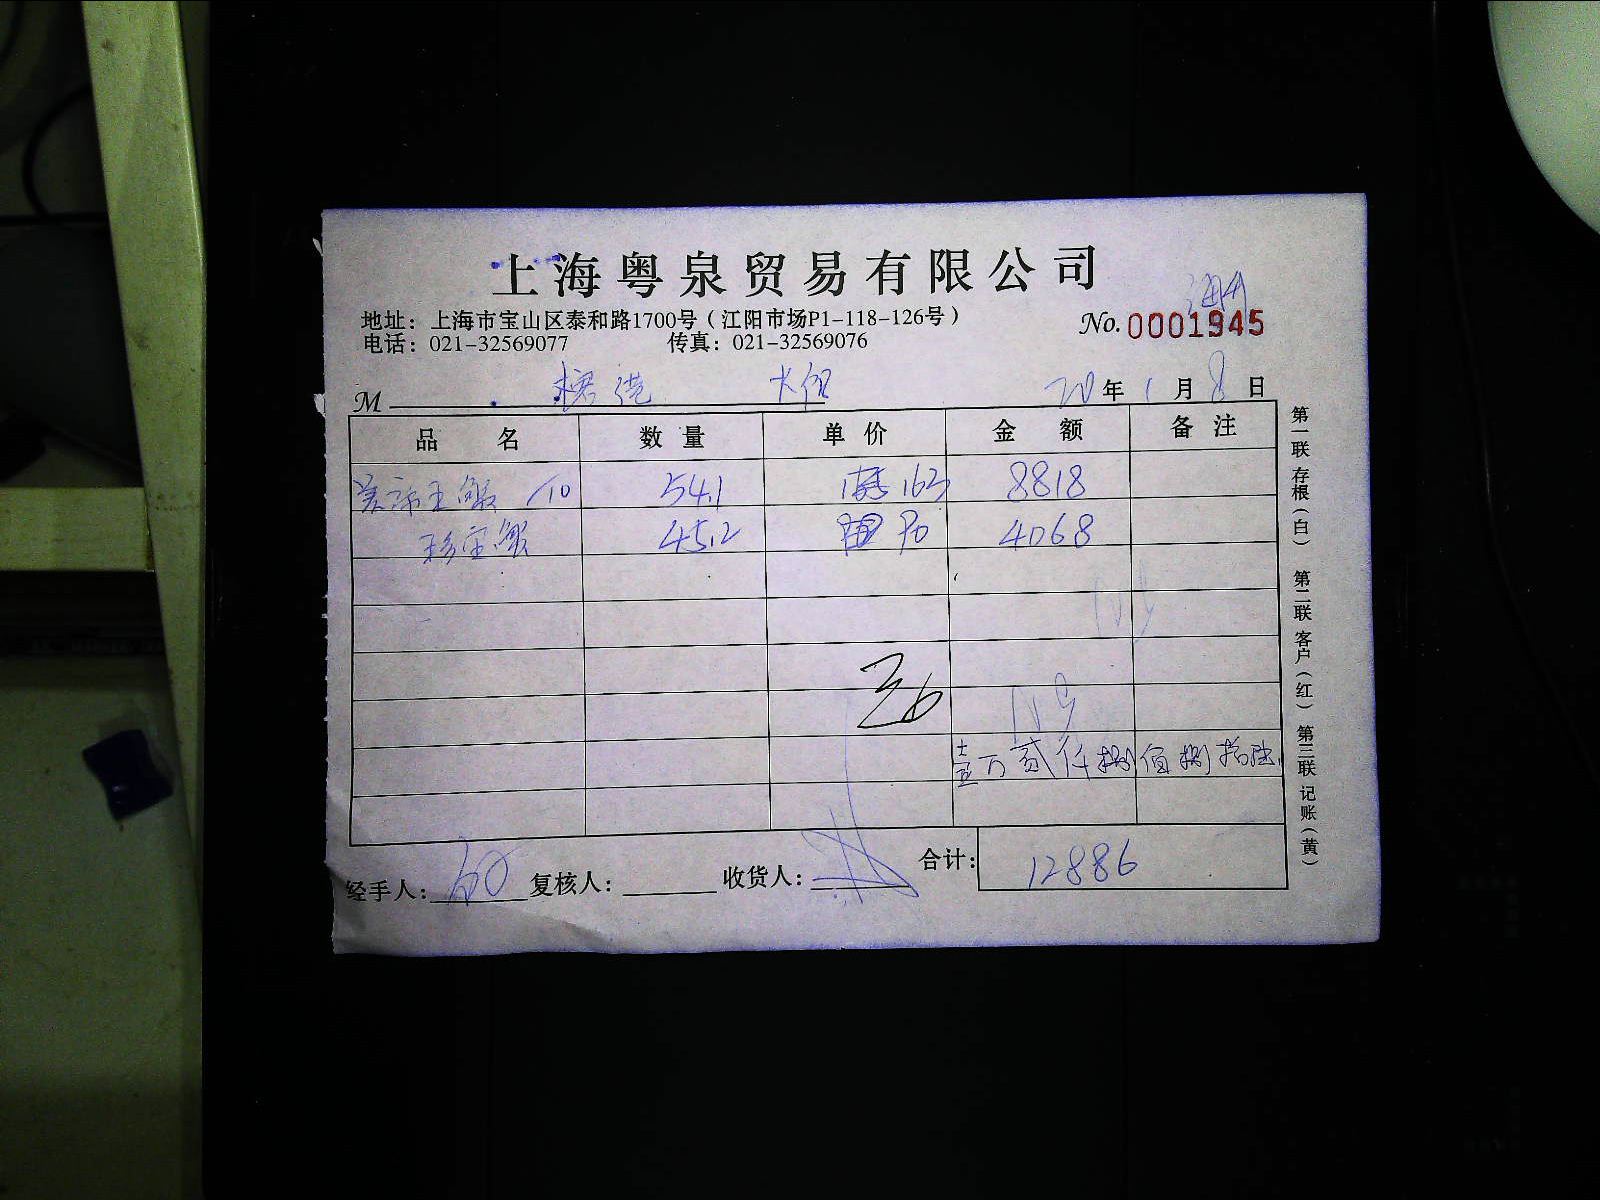 上海粤泉贸易有限公司
地址：上海市宝山区泰和路1700号（江阳市场P1-118-126号）
No. 0001945
电话：021-32569077 传真：021-32569076
M 榕港 20年1月8日
品名 数量 单价 金额 备注
王蟹 /10 54.1 163 8818
珍宝蟹 45.2 90 4068
36
壹万贰仟捌佰捌拾陆
经手人： 复核人： 收货人： 合计：12886
第一联 存根（白） 第二联 客户（红） 第三联 记账（黄）